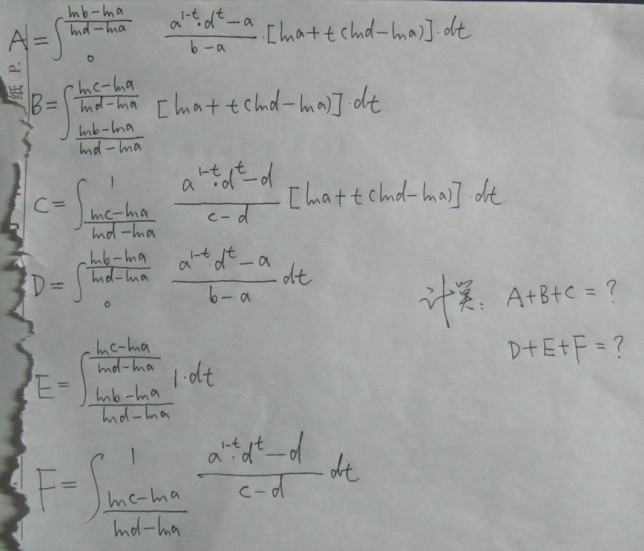 A = ∫_0^{(lnb-lna)/(lnd-lna)} (a^{1-t}·d^t-a)/(b-a)·[lna+t(lnd-lna)]·dt
B = ∫_{(lnb-lna)/(lnd-lna)}^{(lnc-lna)/(lnd-lna)} [lna+t(lnd-lna)]·dt
C = ∫_{(lnc-lna)/(lnd-lna)}^1 (a^{1-t}·d^t-d)/(c-d) [lna+t(lnd-lna)]·dt
D = ∫_0^{(lnb-lna)/(lnd-lna)} (a^{1-t}·d^t-a)/(b-a) dt
计算: A+B+C=?
D+E+F=?
E = ∫_{(lnb-lna)/(lnd-lna)}^{(lnc-lna)/(lnd-lna)} 1·dt
F = ∫_{(lnc-lna)/(lnd-lna)}^1 (a^{1-t}·d^t-d)/(c-d) dt